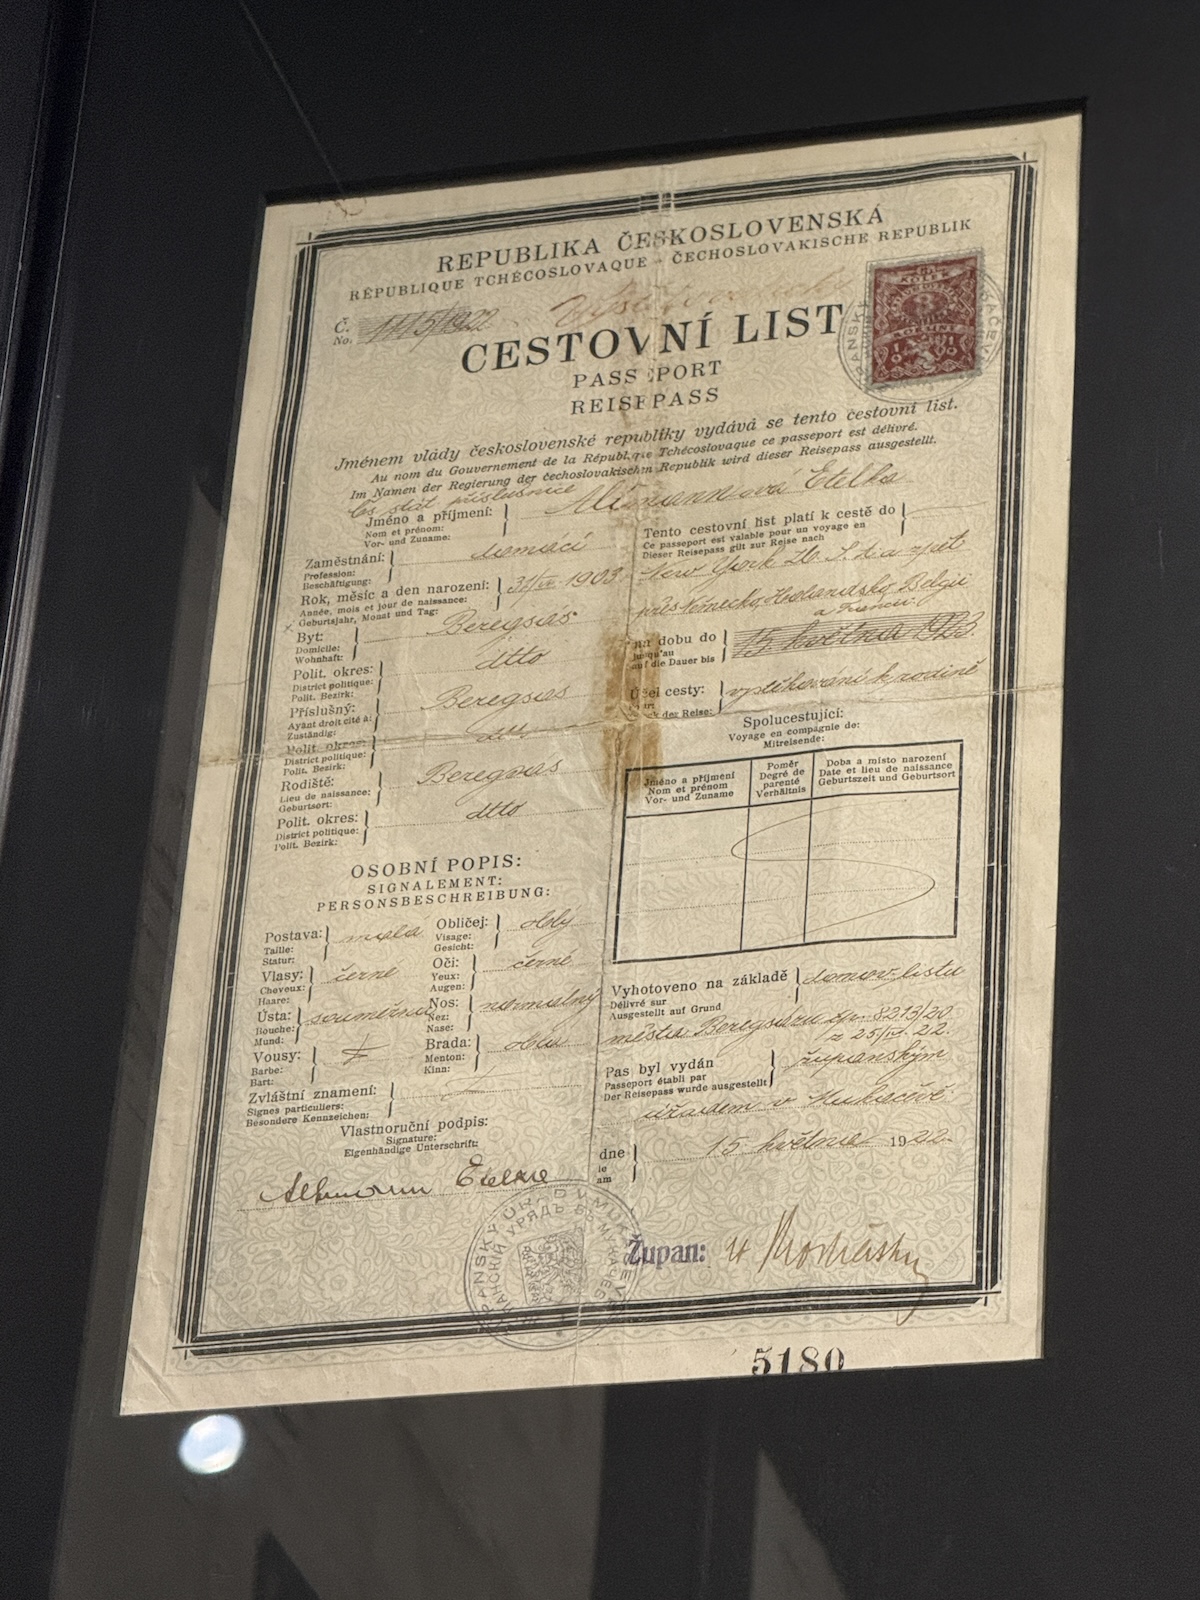 REPUBLIKA ČESKOSLOVENSKÁ
RÉPUBLIQUE TCHÉCOSLOVAQUE - ČECHOSLOVAKISCHE REPUBLIK
Č.
No.
/1922
CESTOVNÍ LIST
PASSEPORT
REISEPASS
Jménem vlády československé republiky vydává se tento cestovní list.
Au nom du Gouvernement de la République Tchécoslovaque ce passeport est délivré.
Im Namen der Regierung der čechoslovakischen Republik wird dieser Reisepass ausgestellt.
čs. stát. příslušnice
Jméno a příjmení:
Nom et prénom:
Vor- und Zuname:
Etelka
Zaměstnání:
Profession:
Beschäftigung:
domácí
Rok, měsíc a den narození:
Année, mois et jour de naissance:
Geburtsjahr, Monat und Tag:
1903
Byt:
Domicile:
Wohnhaft:
Beregsas
Polit. okres:
District politique:
Polit. Bezirk:
dtto
Příslušný:
Ayant droit cité à:
Zuständig:
Beregsas
Polit. okres:
District politique:
Polit. Bezirk:
dtto
Rodiště:
Lieu de naissance:
Geburtsort:
Beregsas
Polit. okres:
District politique:
Polit. Bezirk:
dtto
OSOBNÍ POPIS:
SIGNALEMENT:
PERSONSBESCHREIBUNG:
Postava:
Taille:
Statur:
malá
Obličej:
Visage:
Gesicht:
oblý
Vlasy:
Cheveux:
Haare:
černé
Oči:
Yeux:
Augen:
černé
Ústa:
Bouche:
Mund:
souměrná
Nos:
Nez:
Nase:
normální
Vousy:
Barbe:
Bart:
Brada:
Menton:
Kinn:
oblá
Zvláštní znamení:
Signes particuliers:
Besondere Kennzeichen:
Vlastnoruční podpis:
Signature:
Eigenhändige Unterschrift:
Etelka
Tento cestovní list platí k cestě do
Ce passeport est valable pour un voyage en
Dieser Reisepass gilt zur Reise nach
New York a zpět
přes Německo, Holandsko, Belgii
a Francii
na dobu do
jusqu'au
auf die Dauer bis
15. května 1923.
Účel cesty:
der Reise:
vystěhování k rodině
Spolucestující:
Voyage en compagnie de:
Mitreisende:
Jméno a příjmení
Nom et prénom
Vor- und Zuname
Poměr
Degré de
parenté
Verhältnis
Doba a místo narození
Date et lieu de naissance
Geburtszeit und Geburtsort
Vyhotoveno na základě
Délivré sur
Ausgestellt auf Grund
domov. listu
města Beregsasu čp. 8213/20
z 25/IV. 22.
Pas byl vydán
Passeport établi par
Der Reisepass wurde ausgestellt
županským
úřadem v Mukačevě
dne
le
am
15 května 1922.
Župan:
5180